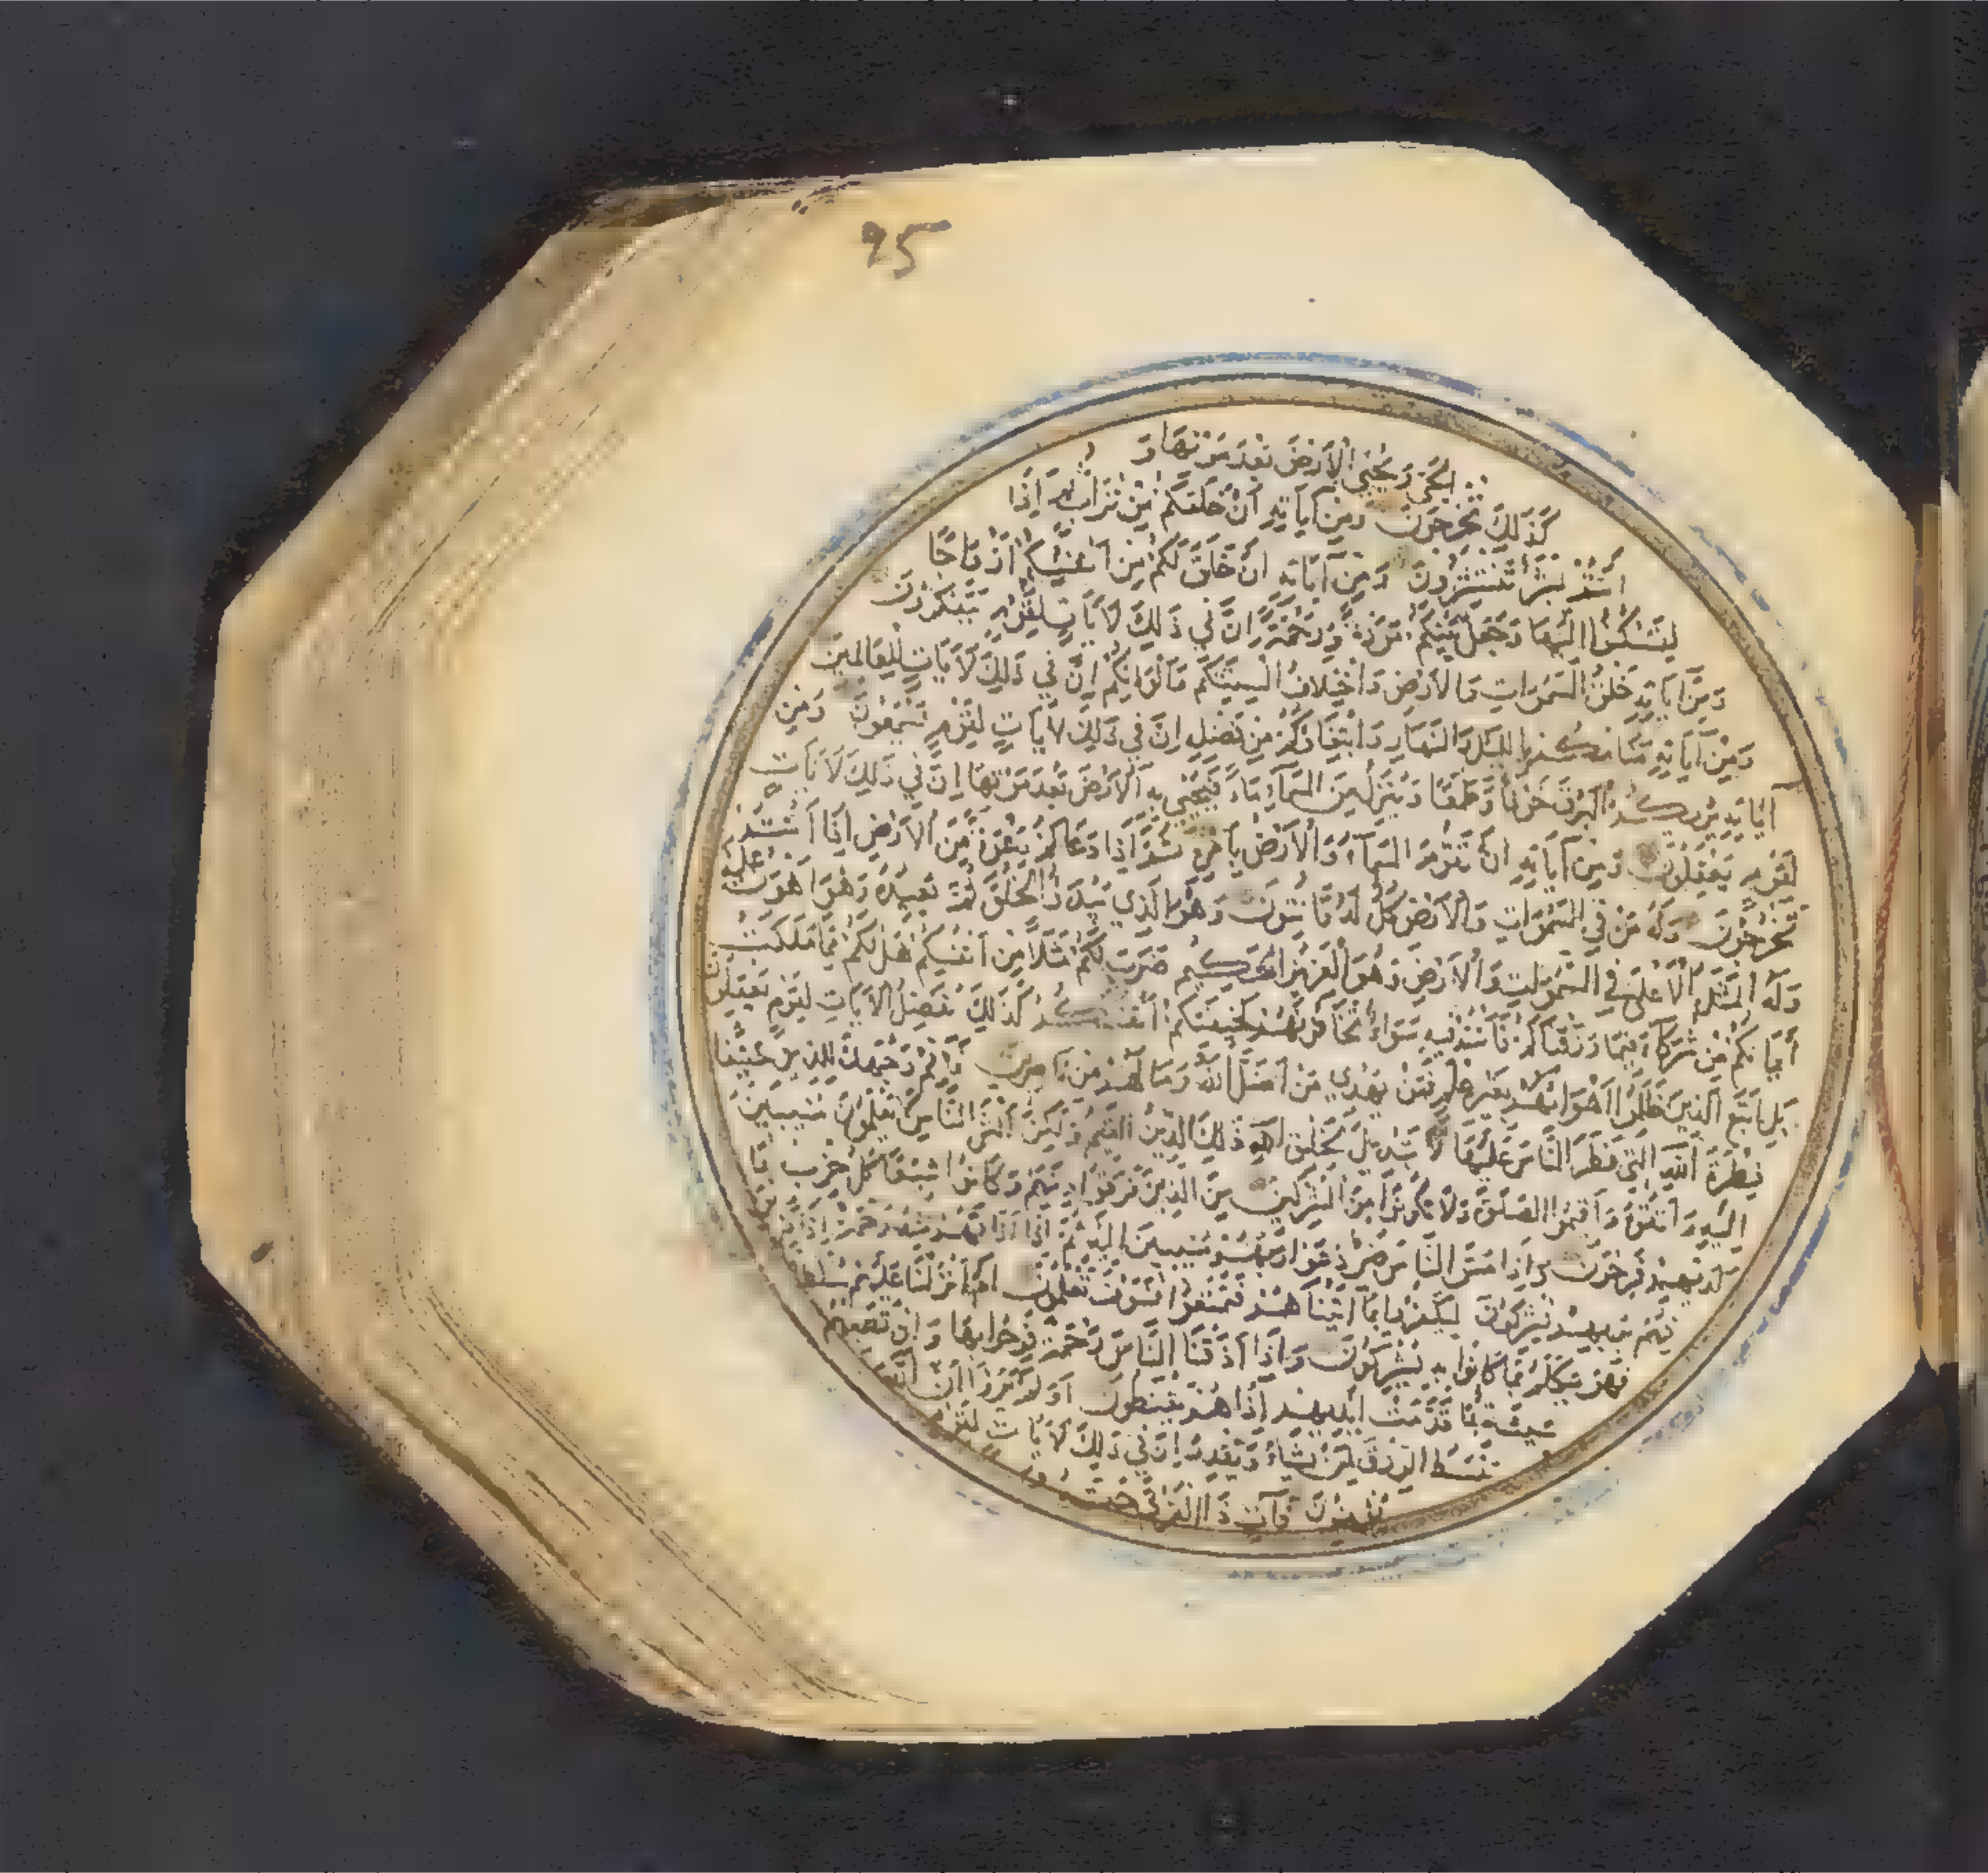 95
الحي ويحيي الأرض بعد موتها و
كذلك تخرجون ومن آياته أن خلقكم من تراب ثم إذا
أنتم بشر تنتشرون ومن آياته أن خلق لكم من أنفسكم أزواجا
لتسكنوا إليها وجعل بينكم مودة ورحمة إن في ذلك لآيات لقوم يتفكرون
ومن آياته خلق السموات والأرض واختلاف ألسنتكم وألوانكم إن في ذلك لآيات للعالمين
ومن آياته منامكم بالليل والنهار وابتغاؤكم من فضله إن في ذلك لآيات لقوم يسمعون ومن
آياته يريكم البرق خوفا وطمعا وينزل من السماء ماء فيحيي به الأرض بعد موتها إن في ذلك لآيات
لقوم يعقلون ومن آياته أن تقوم السماء والأرض بأمره ثم إذا دعاكم دعوة من الأرض إذا أنتم
تخرجون وله من في السموات والأرض كل له قانتون وهو الذي يبدؤ الخلق ثم يعيده وهو أهون عليه
وله المثل الأعلى في السموات والأرض وهو العزيز الحكيم ضرب لكم مثلا من أنفسكم هل لكم مما ملكت
أيمانكم من شركاء فيما رزقناكم فأنتم فيه سواء تخافونهم كخيفتكم أنفسكم كذلك نفصل الآيات لقوم يعقلون
بل اتبع الذين ظلموا أهواءهم بغير علم فمن يهدي من أضل الله وما لهم من ناصرين فأقم وجهك للدين حنيفا
فطرة الله التي فطر الناس عليها لا تبديل لخلق الله ذلك الدين القيم ولكن أكثر الناس لا يعلمون منيبين
إليه واتقوه وأقيموا الصلوة ولا تكونوا من المشركين من الذين فرقوا دينهم وكانوا شيعا كل حزب بما
لديهم فرحون وإذا مس الناس ضر دعوا ربهم منيبين إليه ثم إذا أذاقهم منه رحمة إذا فريق
منهم بربهم يشركون ليكفروا بما آتيناهم فتمتعوا فسوف تعلمون أم أنزلنا عليهم سلطانا
فهو يتكلم بما كانوا به يشركون وإذا أذقنا الناس رحمة فرحوا بها وإن تصبهم
سيئة بما قدمت أيديهم إذا هم يقنطون أولم يروا أن الله
يبسط الرزق لمن يشاء ويقدر إن في ذلك لآيات لقوم
يؤمنون فآت ذا القربى حقه